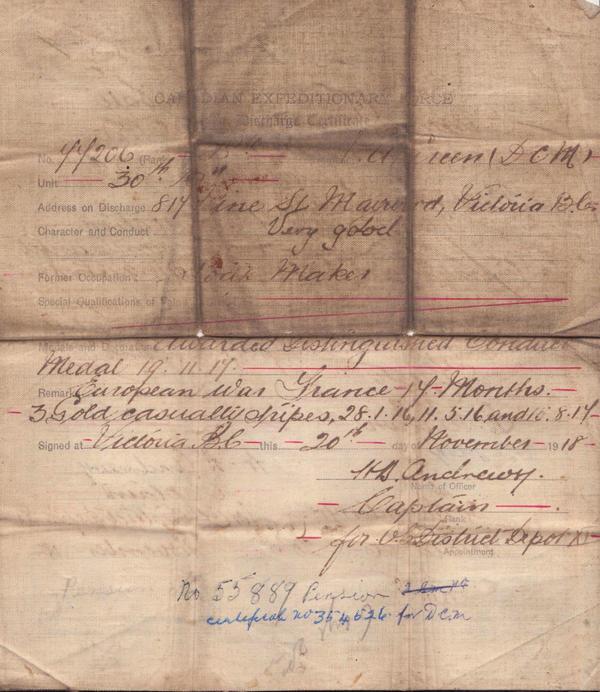 CANADIAN EXPEDITIONARY FORCE
Discharge Certificate
No. 77206 (Rank) Green (D.C.M)
Unit 30th
Address on Discharge 817 Pine St Maywood, Victoria B.C.
Character and Conduct Very good
Former Occupation Maker
Special Qualifications of
Medals and Decorations Awarded Distinguished Conduct
Medal 19.11.17.
Remarks European War France 17 Months.
3 Gold casualty stripes, 28.1.16, 11.5.16 and 10.8.17
Signed at Victoria B.C this 20th day of November 1918
H.B. Andrews.
Name of Officer
Captain
Rank
for O. District Depot XI
Appointment
Pension No 55889 Pension
certificate no 354626 for D.C.M